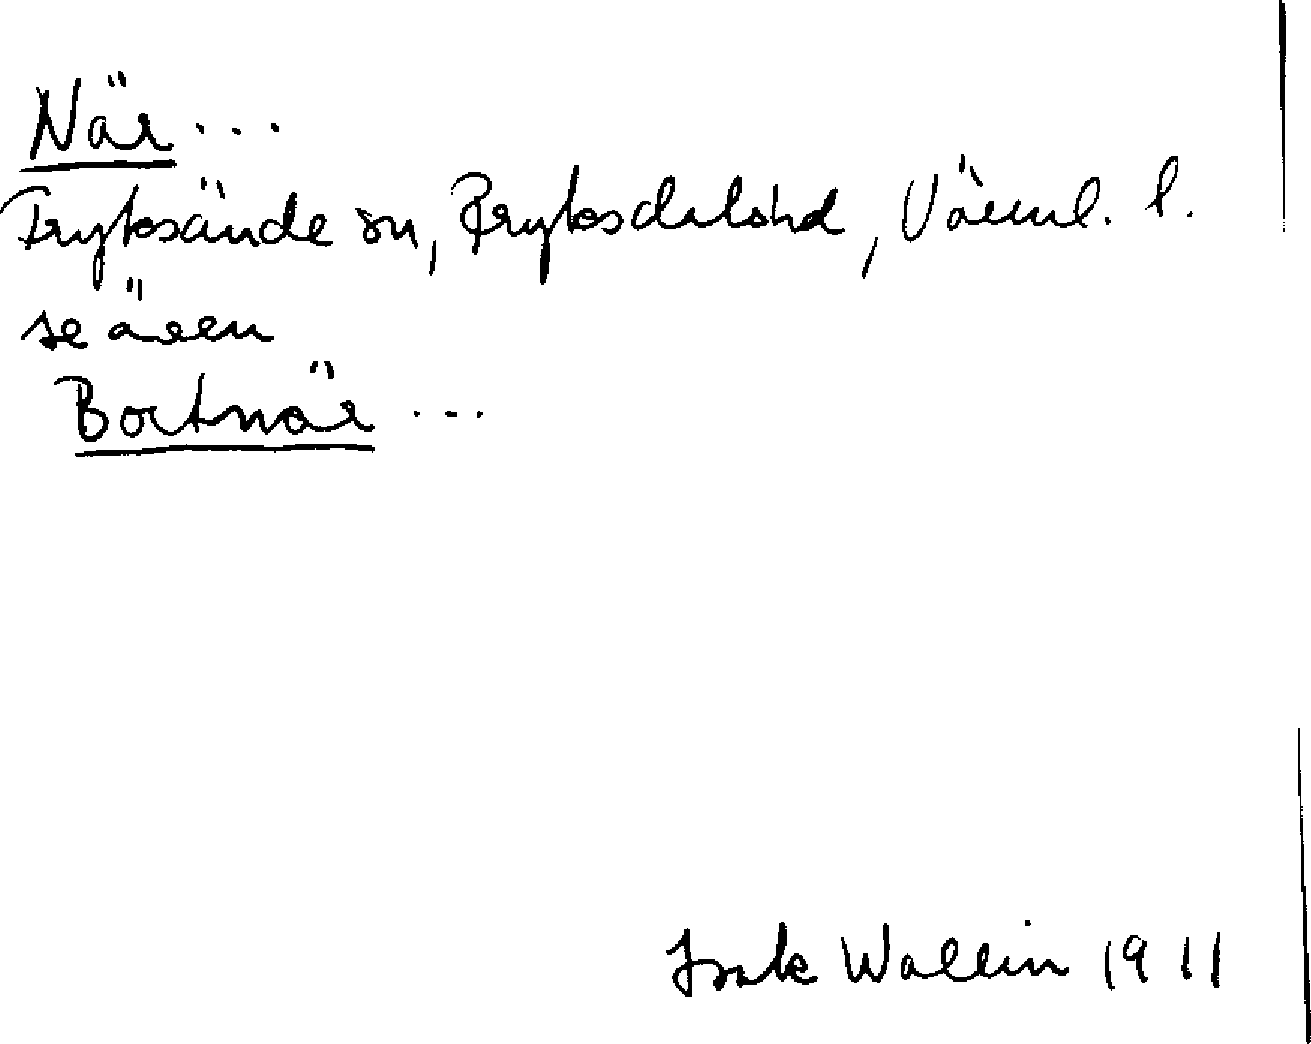 När ...
Fryksände sn, Fryksdals hd, Värml. l.
se även
Bortnär ...
Isak Wallin 1911